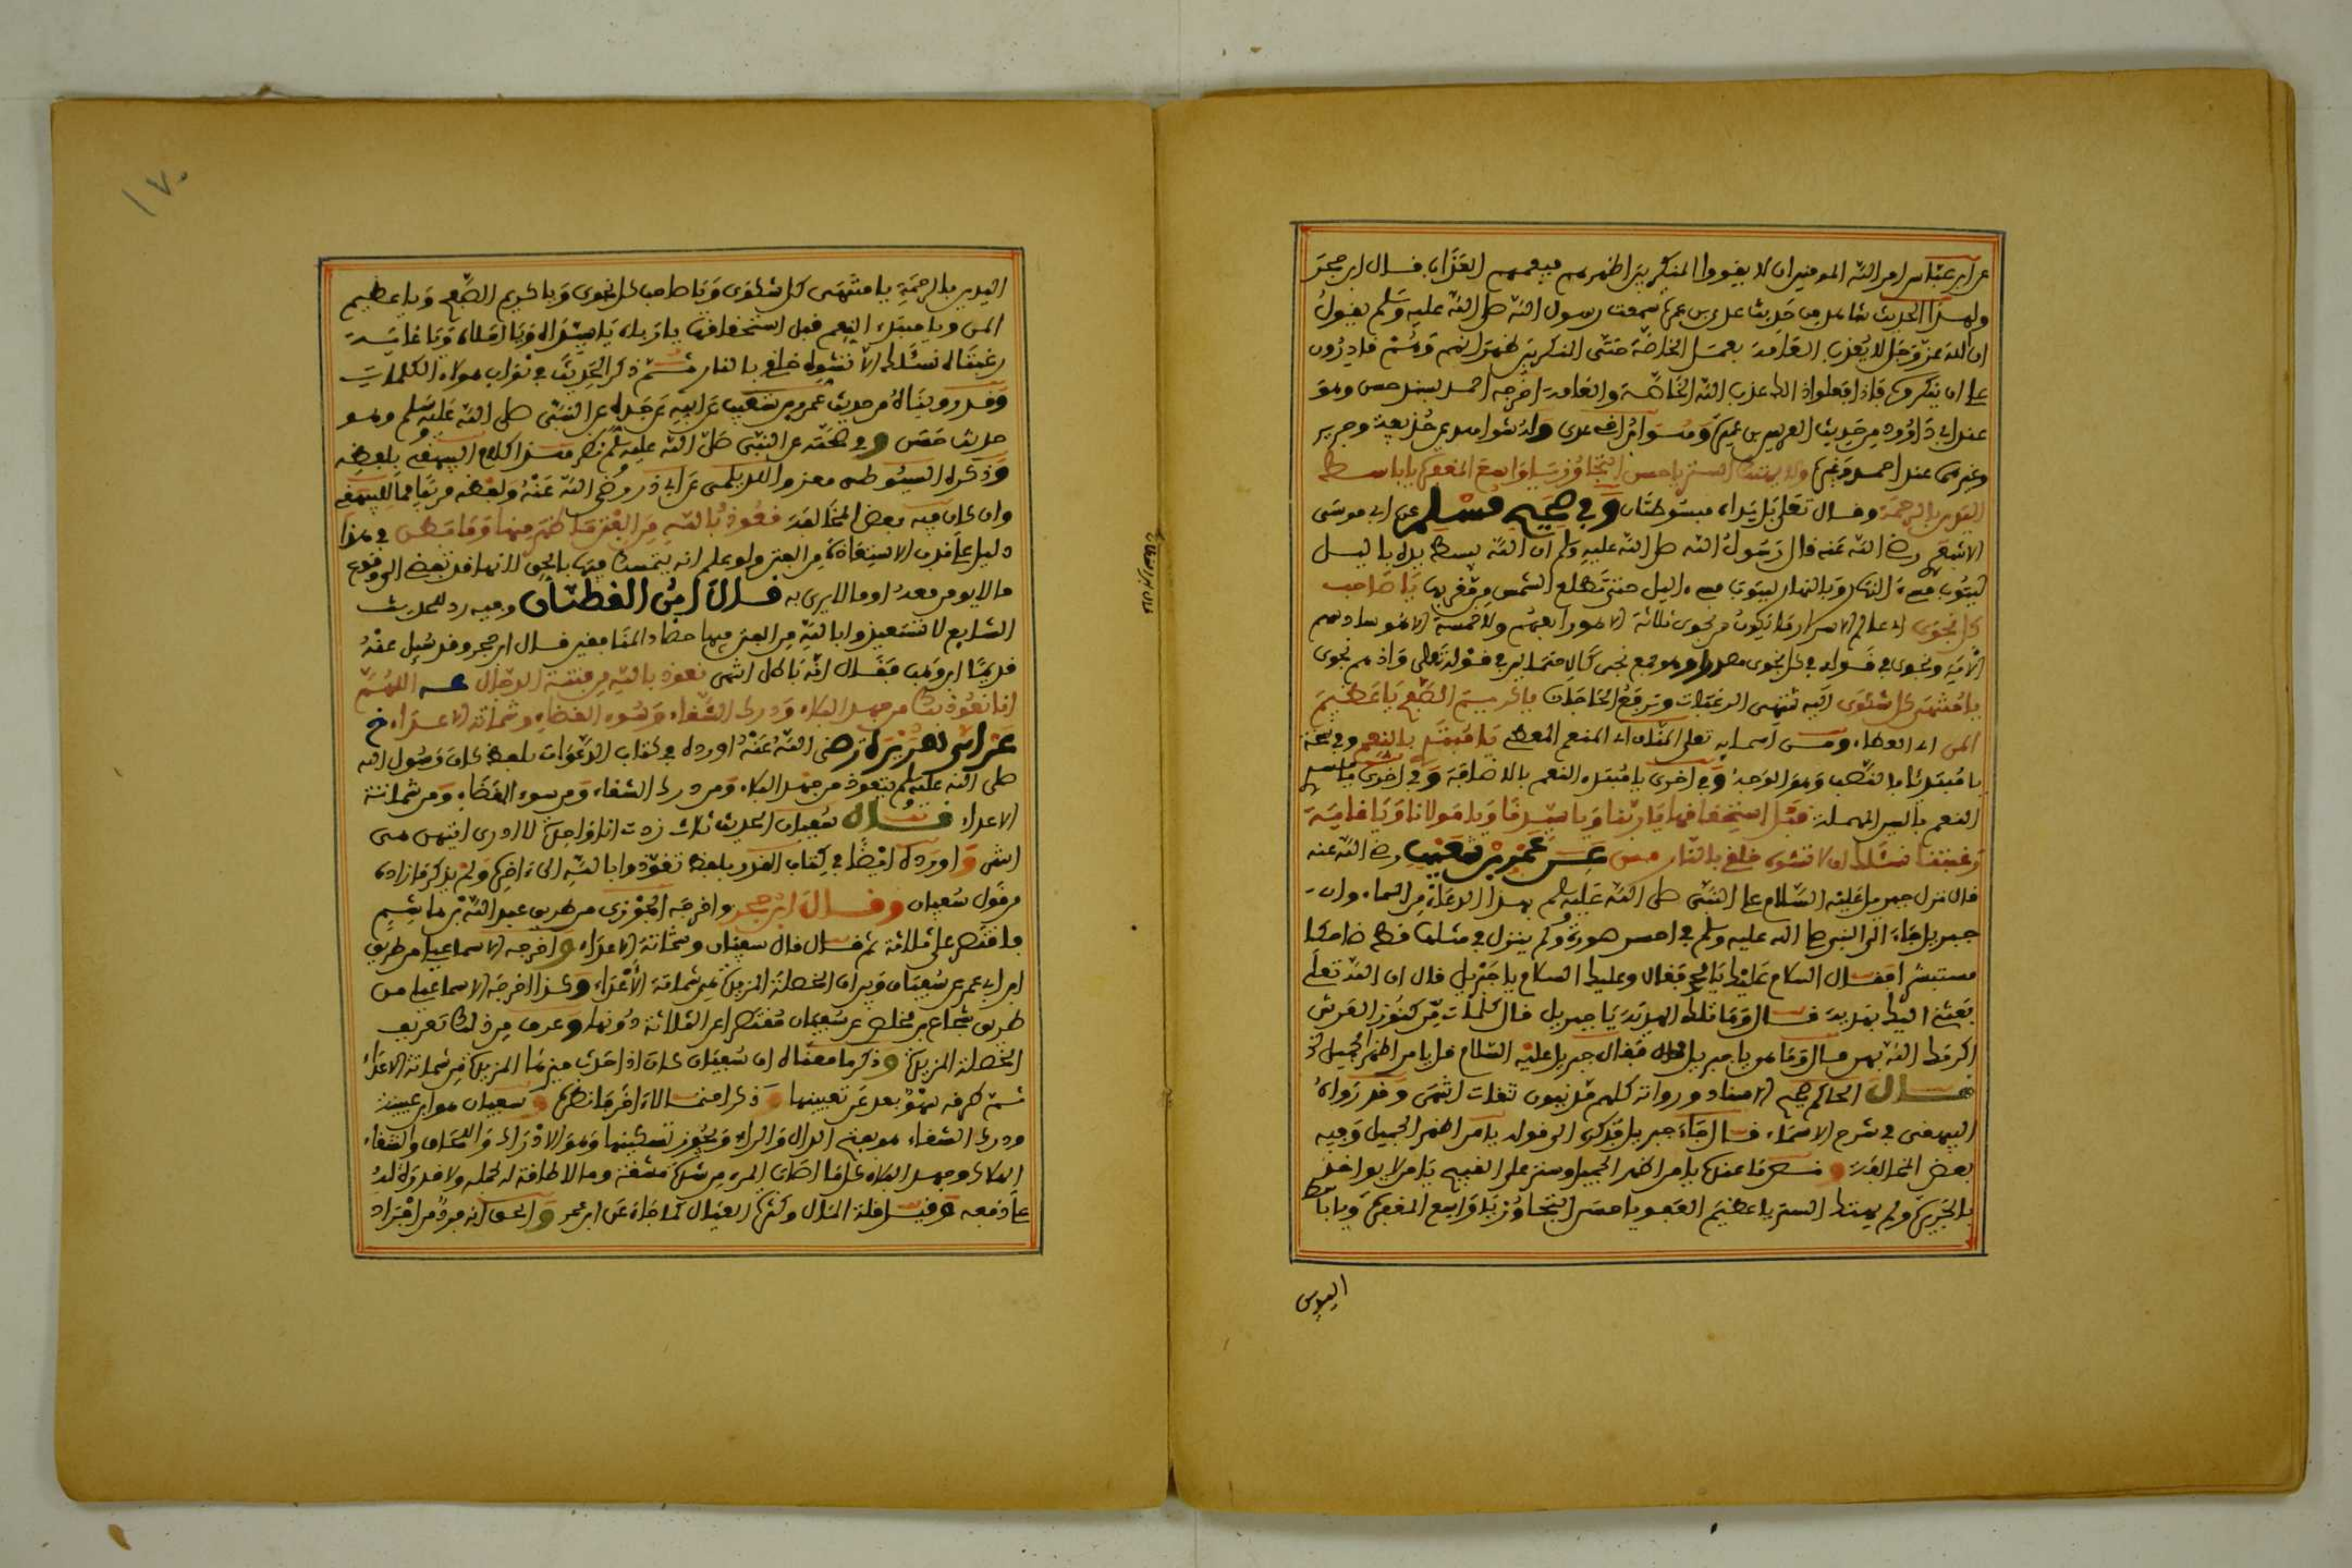 عن ابن عباس امر الله المومنين ان لا يقروا المنكر بين اظهرهم فيعمهم العذاب فال ابن حجر
ولهذا الحديث شاهد من حديث عدي بن عميرة سمعت رسول الله صلى الله عليه وسلم يقول
ان الله عز وجل لا يعذب العامة بعمل الخاصة حتى المنكر بين ظهرانيهم وهم قادرون
على ان ينكروه فاذا فعلوا ذلك عذب الله الخاصة والعامة اخرجه احمد بسند حسن وهو
عند ابي داوود من حديث العرس بن عميرة وهو اخو عدي وله شواهد من حذيفة وجرير
وغيرهما عند احمد وغيره ولا يهتك الستر يا حسن التجاوز يا واسع المغفرة يا باسط
اليدين بالرحمة وفال تعلى بل يداه مبسوطتان وفي صحيح مسلم عن ابي موسى
الاشعري رضي الله عنه فال رسول الله صلى الله عليه وسلم ان الله يبسط يده باليل
ليتوب مسيء النهار وبالنهار ليتوب مسيء اليل حتى تطلع الشمس من مغربها يا صاحب
كل نجوى اي عالم الاسرار ما يكون من نجوى ثلاثة الا هو رابعهم ولا خمسة الا هو سادسهم
الاية ونجوى في فوله في كل نجوى مصدر او هو جمع نجي كالاحتمالين في فوله تعلى واذ هم نجوى
يا منتهى كل شكوى اليه تنتهي الرغبات وترفع الحاجات يا كريم الصفح يا عظيم
المن اي العطاء ومن اسمايه تعلى المنان اي المنعم المعطي يا مبتدئ بالنعم وفي نسخة
يا مبتدئا بالنصب وهو الوجه وفي اخرى يا مبتدئ النعم بالاضافة وفي اخرى
النعم بالسين المهملة قبل استحقاقها يا ربنا ويا سيدنا ويا مولانا ويا غاية
رغبتنا نسئلك ان لا تشوي خلقي بالنار مس عن عمرو بن شعيب رضي الله عنه
فال نزل جبريل عليه السلام على النبي صلى الله عليه وسلم بهذا الدعاء من السماء وان
جبريل جاء الى النبي صلى الله عليه وسلم في احسن صورة ولم ينزل في مثلها قط ضاحكا
مستبشرا فقال السلام عليك يا محمد فقال وعليك السلام يا جبريل فال ان الله تعلى
بعثني اليك بهدية فال وما تلك الهدية يا جبريل فال كلمات من كنوز العرش
اكرمك الله بهن فال وما هن يا جبريل فقال جبريل عليه السلام فل يا من اظهر الجميل الخ
فال الحاكم صحيح الاسناد ورواته كلهم مدنيون ثقات انتهى وفد رواه
البيهقي في شرح الاسماء فال جاء جبريل فذكره الى فوله يا من اظهر الجميل وفيه
بعض المخالفة و عنده يا من اظهر الجميل وستر على القبيح يا من لا يواخذ
بالجريرة ولم يهتك الستر يا عظيم العفو يا حسن التجاوز يا واسع المغفرة ويا باسط
اليدين
١٧٠
اليدين بالرحمة يا منتهى كل شكوى ويا صاحب كل نجوى ويا كريم الصفح ويا عظيم
المن ويا مبتدئ النعم قبل استحقاقها يا رباه يا سيداه ويا املاه ويا غاية
رغبتاه نسئلك الا تشوه خلقي بالنار ثم ذكر الحديث في ثواب هولاء الكلمات
وفد رويناه من حديث عمرو بن شعيب عن ابيه عن جده عن النبي صلى الله عليه وسلم وهو
حديث حسن وفي صحته عن النبي صلى الله عليه وسلم نظر هذا كلام البيهقي بلفظه
وذكره السيوطي معزوا للديلمي عن ابي ذر رضي الله عنه ولفظه فريبا مما للبيهقي
وان كان فيه بعض المخالفة نعوذ بالله من الفتن ما ظهر منها وما بطن في هذا
دليل على ندب الاستعاذة من الفتن ولو علم انه يتمسك فيها بالحق لانها فد تفضي الى وقوع
ما لا يومن معه او ما لا يرى به فال ابن القطان وفيه رد للحديث
الشايع لا تستعيذوا بالله من الفتن فيها حصاد المنافقين فال ابن حجر وفد سئل عنه
فديما ابن وهب فقال انه باطل انتهى نعوذ بالله من فتنة الدجال اللهم
انا نعوذ بك من جهد البلاء ودرك الشقاء وسوء القضاء وشماتة الاعداء خ
عن ابي هريرة رضي الله عنه اورده في كتاب الدعوات بلفظ كان رسول الله
صلى الله عليه وسلم يتعوذ من جهد البلاء ومن درك الشقاء ومن سوء القضاء ومن شماتة
الاعداء فال سفيان الحديث ثلاث زدت انا واحدة لا ادري ايتهن هي
انتهى واورده ايضا في كتاب القدر بلفظ تعوذوا بالله الى ءاخره ولم يذكر ما زاده
من فول سفيان وفال ابن حجر واخرجه الجوزي من طريق عبد الله بن هاشم
فاقتصر على ثلاثة ثم فال فال سفيان وشماتة الاعداء واخرجه الاسماعيلي من طريق
ابن ابي عمر عن سفيان وبين ان الخصلة المزيدة هي شماتة الاعداء وكذا اخرجه الاسماعيلي من
طريق شجاع بن مخلد عن سفيان مقتصرا عن الثلاثة دونها وعرف من ذلك تعريف
الخصلة المزيدة وذكر ما معناه ان سفيان كان اذا حدث ميزها المزيدة من شماتة الاعداء
ثم طرقه سهو بعد عن تعيينها وسفيان هو ابن عيينة
ودرك الشقاء هو بفتح الدال والراء ويجوز تسكينها وهو الادراك واللحاق والشقاء
الهلاك وجهد البلاء كل ما اصاب المرء من شدة مشقة وما لا طاقة له بحمله ولا قدرة له
على دفعه وفيل قلة المال وكثرة العيال كما جاء عن ابن عمر والحق انه فرد من افراد